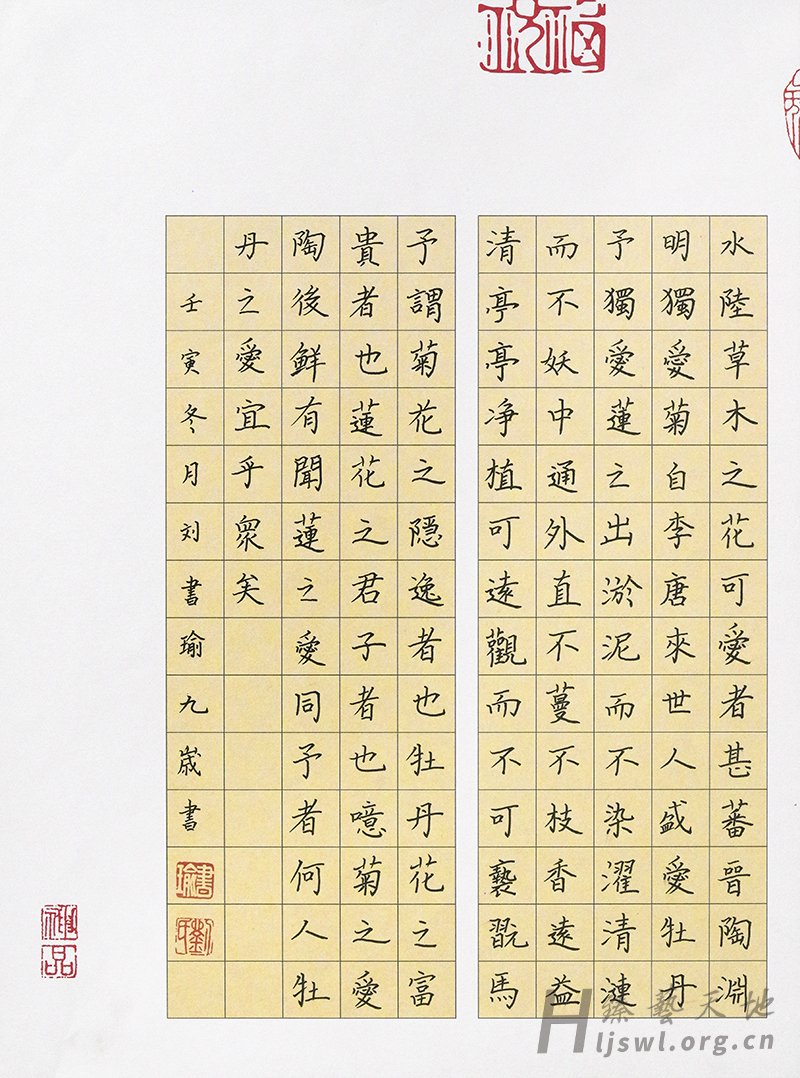 水陸草木之花可愛者甚蕃晉陶淵
明獨愛菊自李唐來世人盛愛牡丹
予獨愛蓮之出淤泥而不染濯清漣
而不妖中通外直不蔓不枝香遠益
清亭亭凈植可遠觀而不可褻翫馬
予謂菊花之隱逸者也牡丹花之富
貴者也蓮花之君子者也噫菊之愛
陶後鮮有聞蓮之愛同予者何人牡
丹之愛宜乎衆矣
壬寅冬月刘書瑜九歲書
書瑜
神品
臻藝天地
Hljswl.org.cn